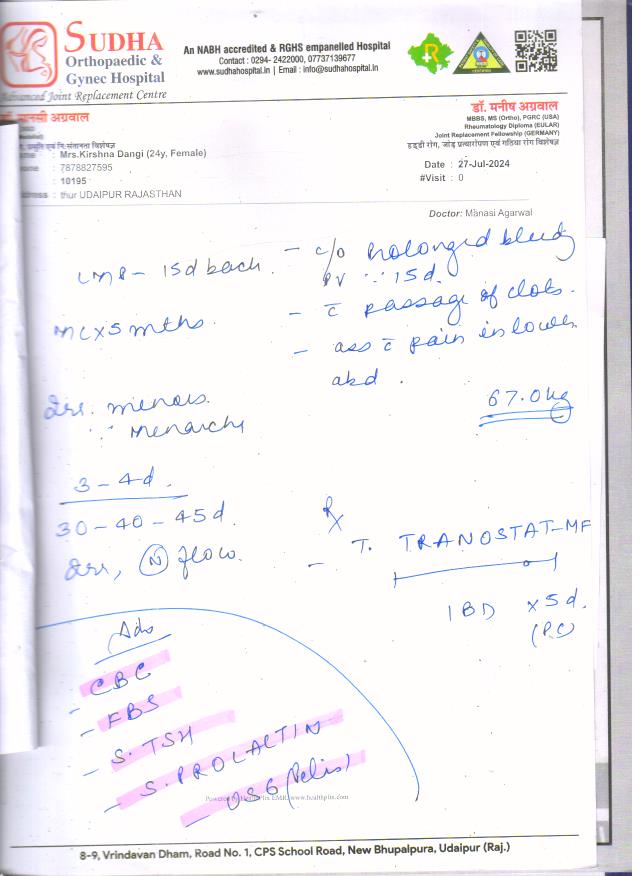 SUDHA
Orthopaedic &
Gynec Hospital
Advanced Joint Replacement Centre
An NABH accredited & RGHS empanelled Hospital
Contact : 0294- 2422000, 07737139677
www.sudhahospital.in | Email : info@sudhahospital.in
मानसी अग्रवाल
डॉ. मनीष अग्रवाल
MBBS, MS (Ortho), PGRC (USA)
Rheumatology Diploma (EULAR)
Joint Replacement Fellowship (GERMANY)
हड्डी रोग, जोड़ प्रत्यारोपण एवं गठिया रोग विशेषज्ञ
प्रसूति एवं नि:संतानता विशेषज्ञ
: Mrs.Kirshna Dangi (24y, Female)
: 7878827595
: 10195
: thur UDAIPUR RAJASTHAN
Date : 27-Jul-2024
#Visit : 0
Doctor: Manasi Agarwal
LMP - 15d back.
- c/o Prolonged bleedg
PV ∵ 15d.
MC x 5 mths.
- c̄ passage of clots.
- ass c̄ pain in lower
abd.
Irr. menses.
∵ Menarche
67.0kg
3-4d.
30-40-45d.
Irr, (N) flow.
Rx
- T. TRANOSTAT-MF
1BD x5d.
(P.C)
Adv
- CBC
- FBS
- S.TSH
- S.PROLACTIN
- USG (Pelvis)
Powered by HealthPlix EMR. www.healthplix.com
8-9, Vrindavan Dham, Road No. 1, CPS School Road, New Bhupalpura, Udaipur (Raj.)